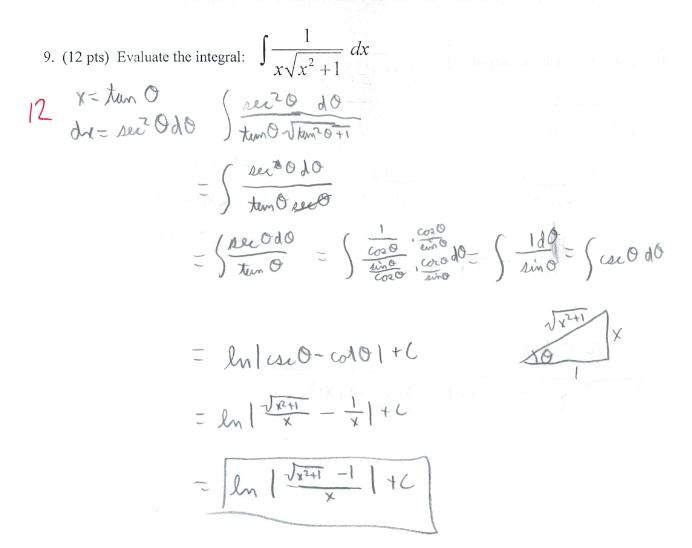 9. (12 pts) Evaluate the integral: ∫ 1/(x√(x² + 1)) dx
12
x = tan θ
dx = sec²θ dθ
∫ (sec²θ dθ)/(tanθ √(tan²θ+1))
= ∫ (sec²θ dθ)/(tanθ secθ)
= ∫ (secθ dθ)/(tan θ) = ∫ (1/cosθ)/(sinθ/cosθ) · (cosθ/sinθ)/(cosθ/sinθ) dθ = ∫ 1dθ/sinθ = ∫ cscθ dθ
√(x²+1)
x
θ
1
= ln|cscθ - cotθ| + C
= ln| √(x²+1)/x - 1/x | + C
= ln | (√(x²+1) - 1)/x | + C